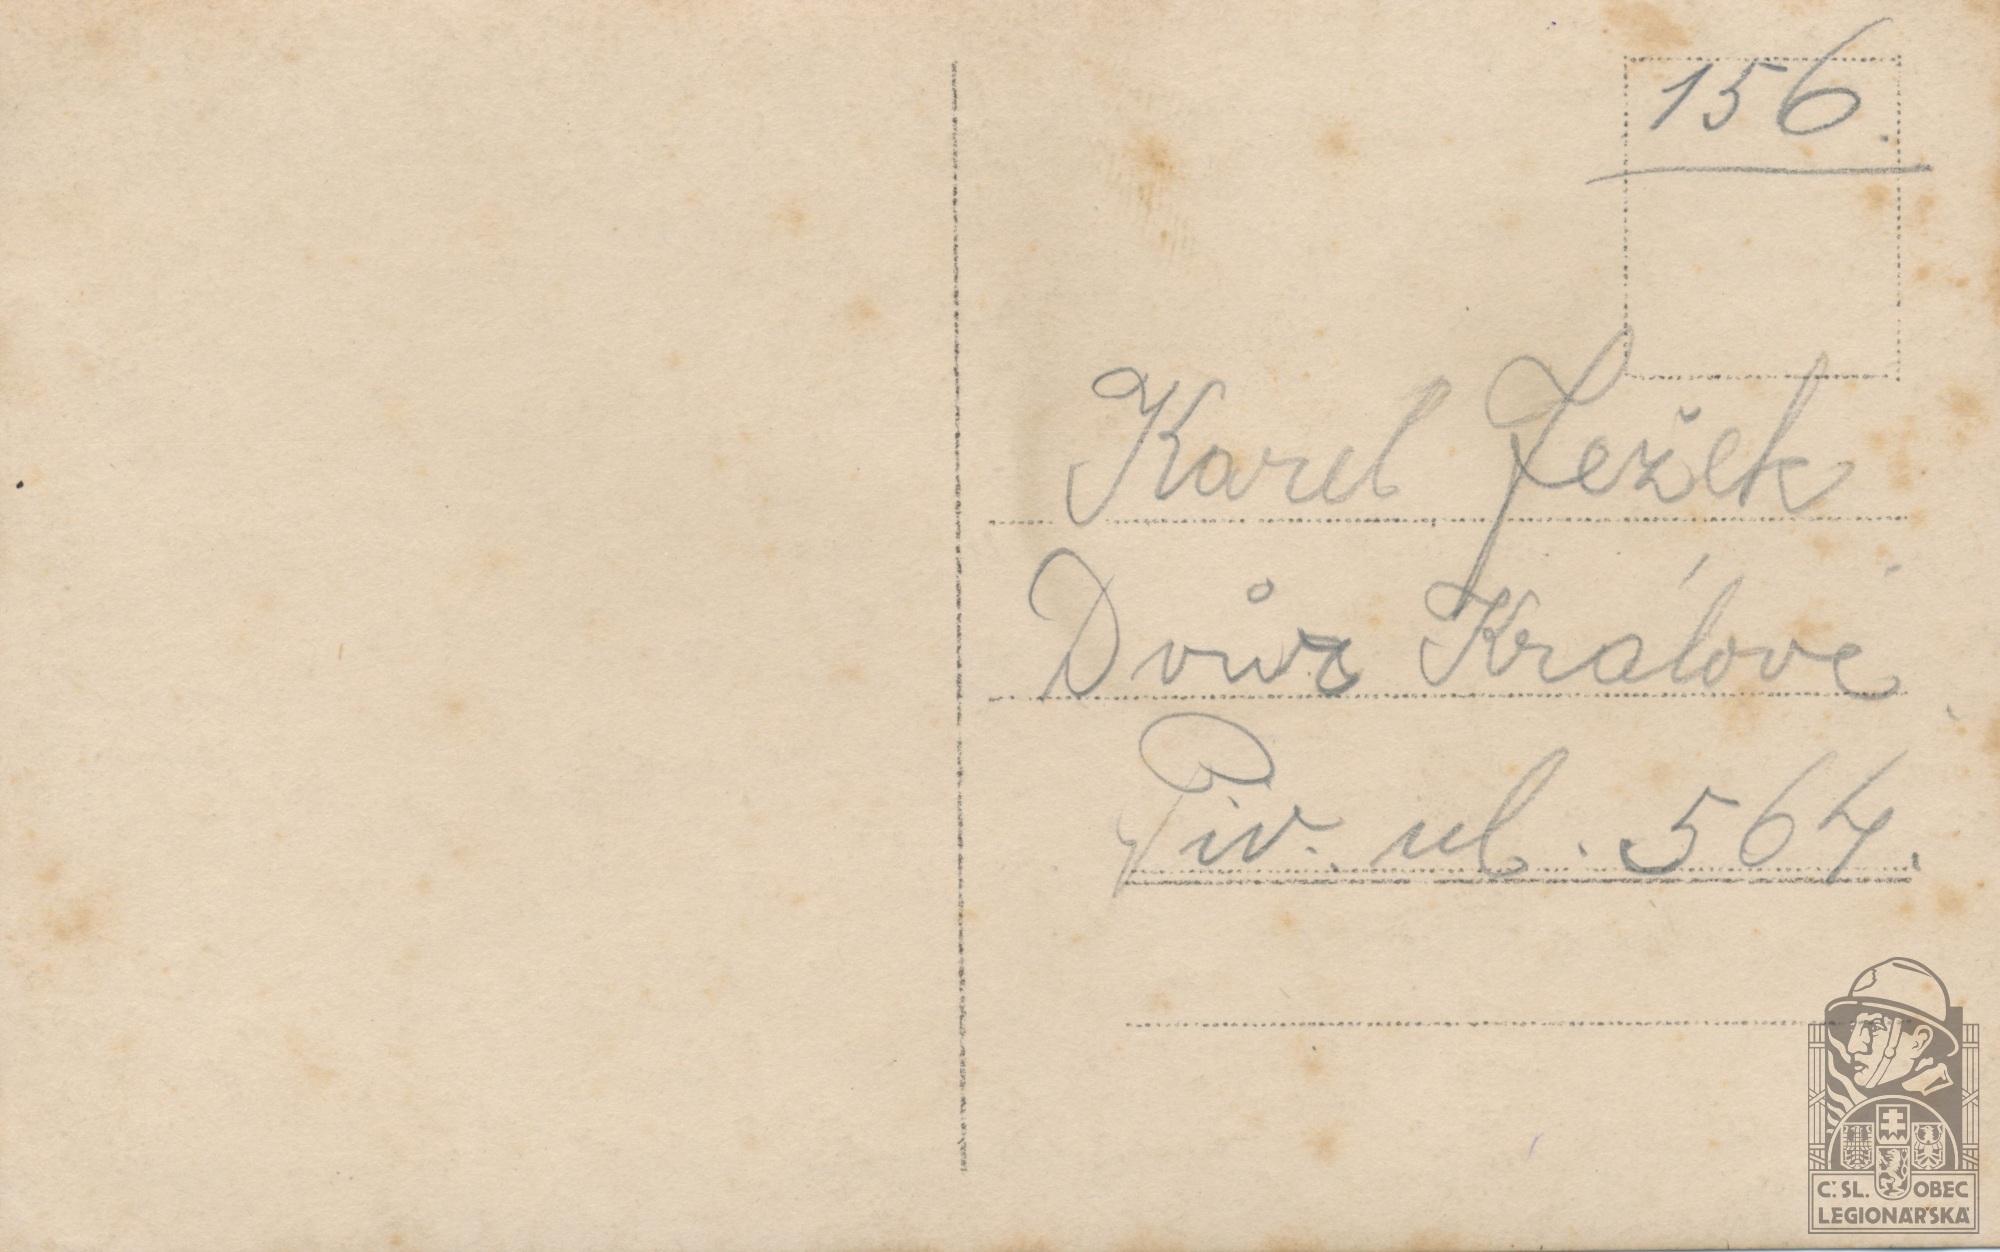 156.
Karel Ježek
Dvůr Králové
Piv. ul. 564.
Č.SL. OBEC
LEGIONÁŘSKÁ